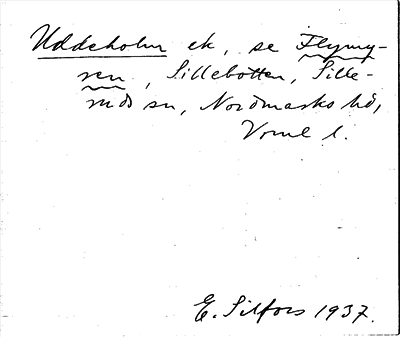 Uddeholm ek, se Flymy-
ren, Sillebotten, Sille-
rud sn, Nordmarks hd,
Vrml l.
E. Silfors 1937.